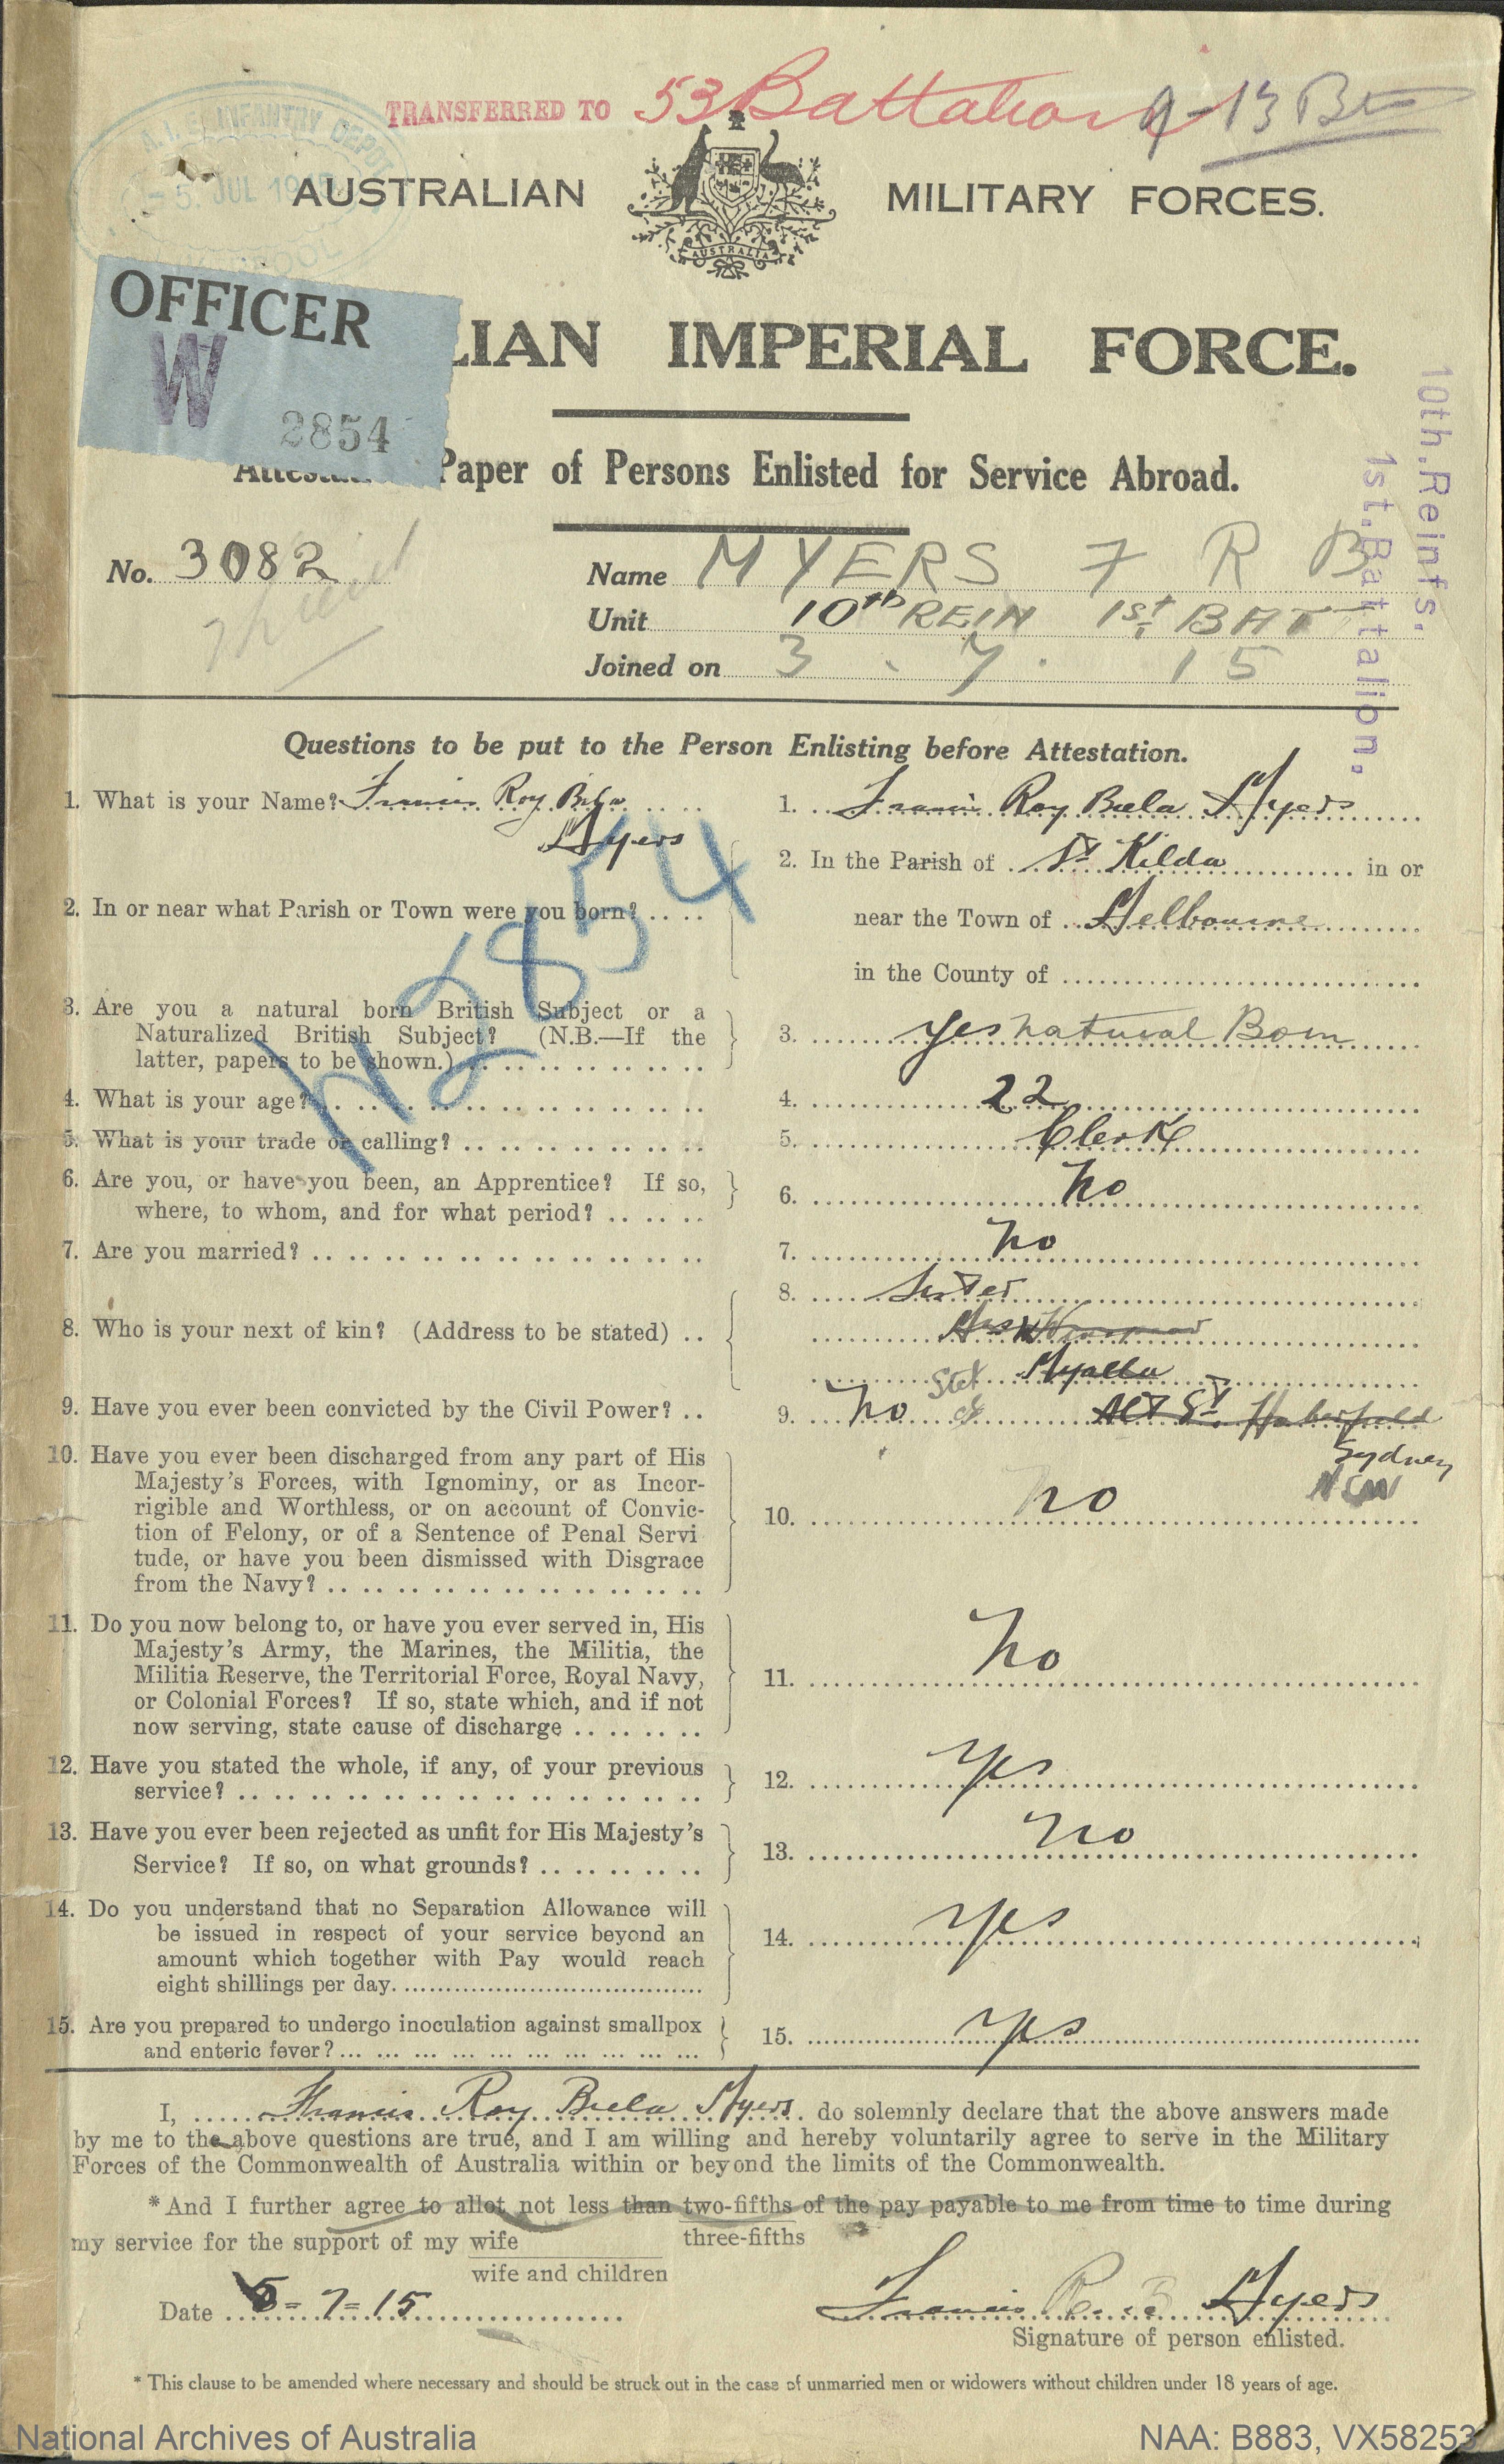 TRANSFERRED TO 53 Battalion 9-13 Btn
A.I.F. INFANTRY DEPOT
5 JUL 1915
AUSTRALIAN MILITARY FORCES.
AUSTRALIA
OFFICER
W
2854
LIAN IMPERIAL FORCE.
Paper of Persons Enlisted for Service Abroad.
10th.Reinfs.
1st.Battalion.
No. 3082
Name MYERS F R B
Unit 10th REIN 1st BAT
Joined on 3 . 7 . 15
Questions to be put to the Person Enlisting before Attestation.
1. What is your Name? Francis Roy Myers
1. Francis Roy Beela Myers
2. In or near what Parish or Town were you born?
2. In the Parish of St Kilda in or
near the Town of Melbourne
in the County of
W2854
3. Are you a natural born British Subject or a
Naturalized British Subject? (N.B.—If the
latter, papers to be shown.)
3. yes natural Born
4. What is your age?
4. 22
5. What is your trade or calling?
5. Clerk
6. Are you, or have you been, an Apprentice? If so,
where, to whom, and for what period?
6. No
7. Are you married?
7. No
8. Who is your next of kin? (Address to be stated)
8. Sister
Mrs
Stet Myalla
9. Have you ever been convicted by the Civil Power?
9. No Alt St. Haberfield
Sydney
NSW
10. Have you ever been discharged from any part of His
Majesty's Forces, with Ignominy, or as Incor-
rigible and Worthless, or on account of Convic-
tion of Felony, or of a Sentence of Penal Servi
tude, or have you been dismissed with Disgrace
from the Navy?
10. no
11. Do you now belong to, or have you ever served in, His
Majesty's Army, the Marines, the Militia, the
Militia Reserve, the Territorial Force, Royal Navy,
or Colonial Forces? If so, state which, and if not
now serving, state cause of discharge
11. No
12. Have you stated the whole, if any, of your previous
service?
12. Yes
13. Have you ever been rejected as unfit for His Majesty's
Service? If so, on what grounds?
13. No
14. Do you understand that no Separation Allowance will
be issued in respect of your service beyond an
amount which together with Pay would reach
eight shillings per day.
14. Yes
15. Are you prepared to undergo inoculation against smallpox
and enteric fever?
15. Yes
I, Francis Roy Beela Myers do solemnly declare that the above answers made
by me to the above questions are true, and I am willing and hereby voluntarily agree to serve in the Military
Forces of the Commonwealth of Australia within or beyond the limits of the Commonwealth.
*And I further agree to allot not less than two-fifths of the pay payable to me from time to time during
three-fifths
my service for the support of my wife
wife and children
Date 5-7-15
Francis R. B Myers
Signature of person enlisted.
* This clause to be amended where necessary and should be struck out in the case of unmarried men or widowers without children under 18 years of age.
National Archives of Australia
NAA: B883, VX58253